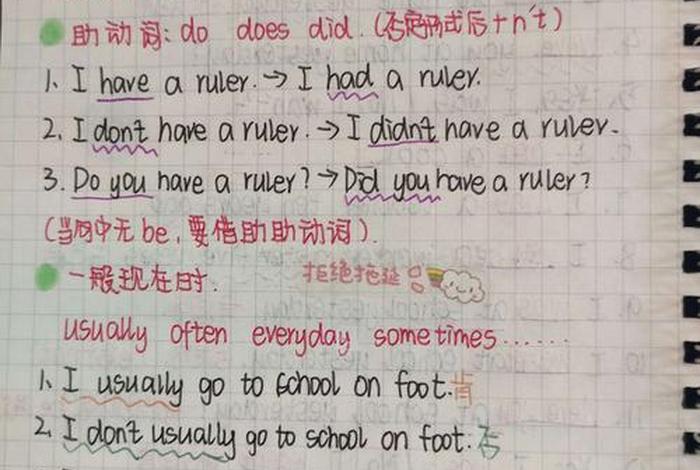 助动词: do does did. (否定形式后+n't)
1. I have a ruler. → I had a ruler.
2. I don't have a ruler. → I didn't have a ruler.
3. Do you have a ruler? → Did you have a ruler?
(当句中无be, 要借助助动词).
一般现在时. 拒绝拖延
usually often everyday sometimes......
1. I usually go to school on foot. 肯
2. I don't usually go to school on foot. 否